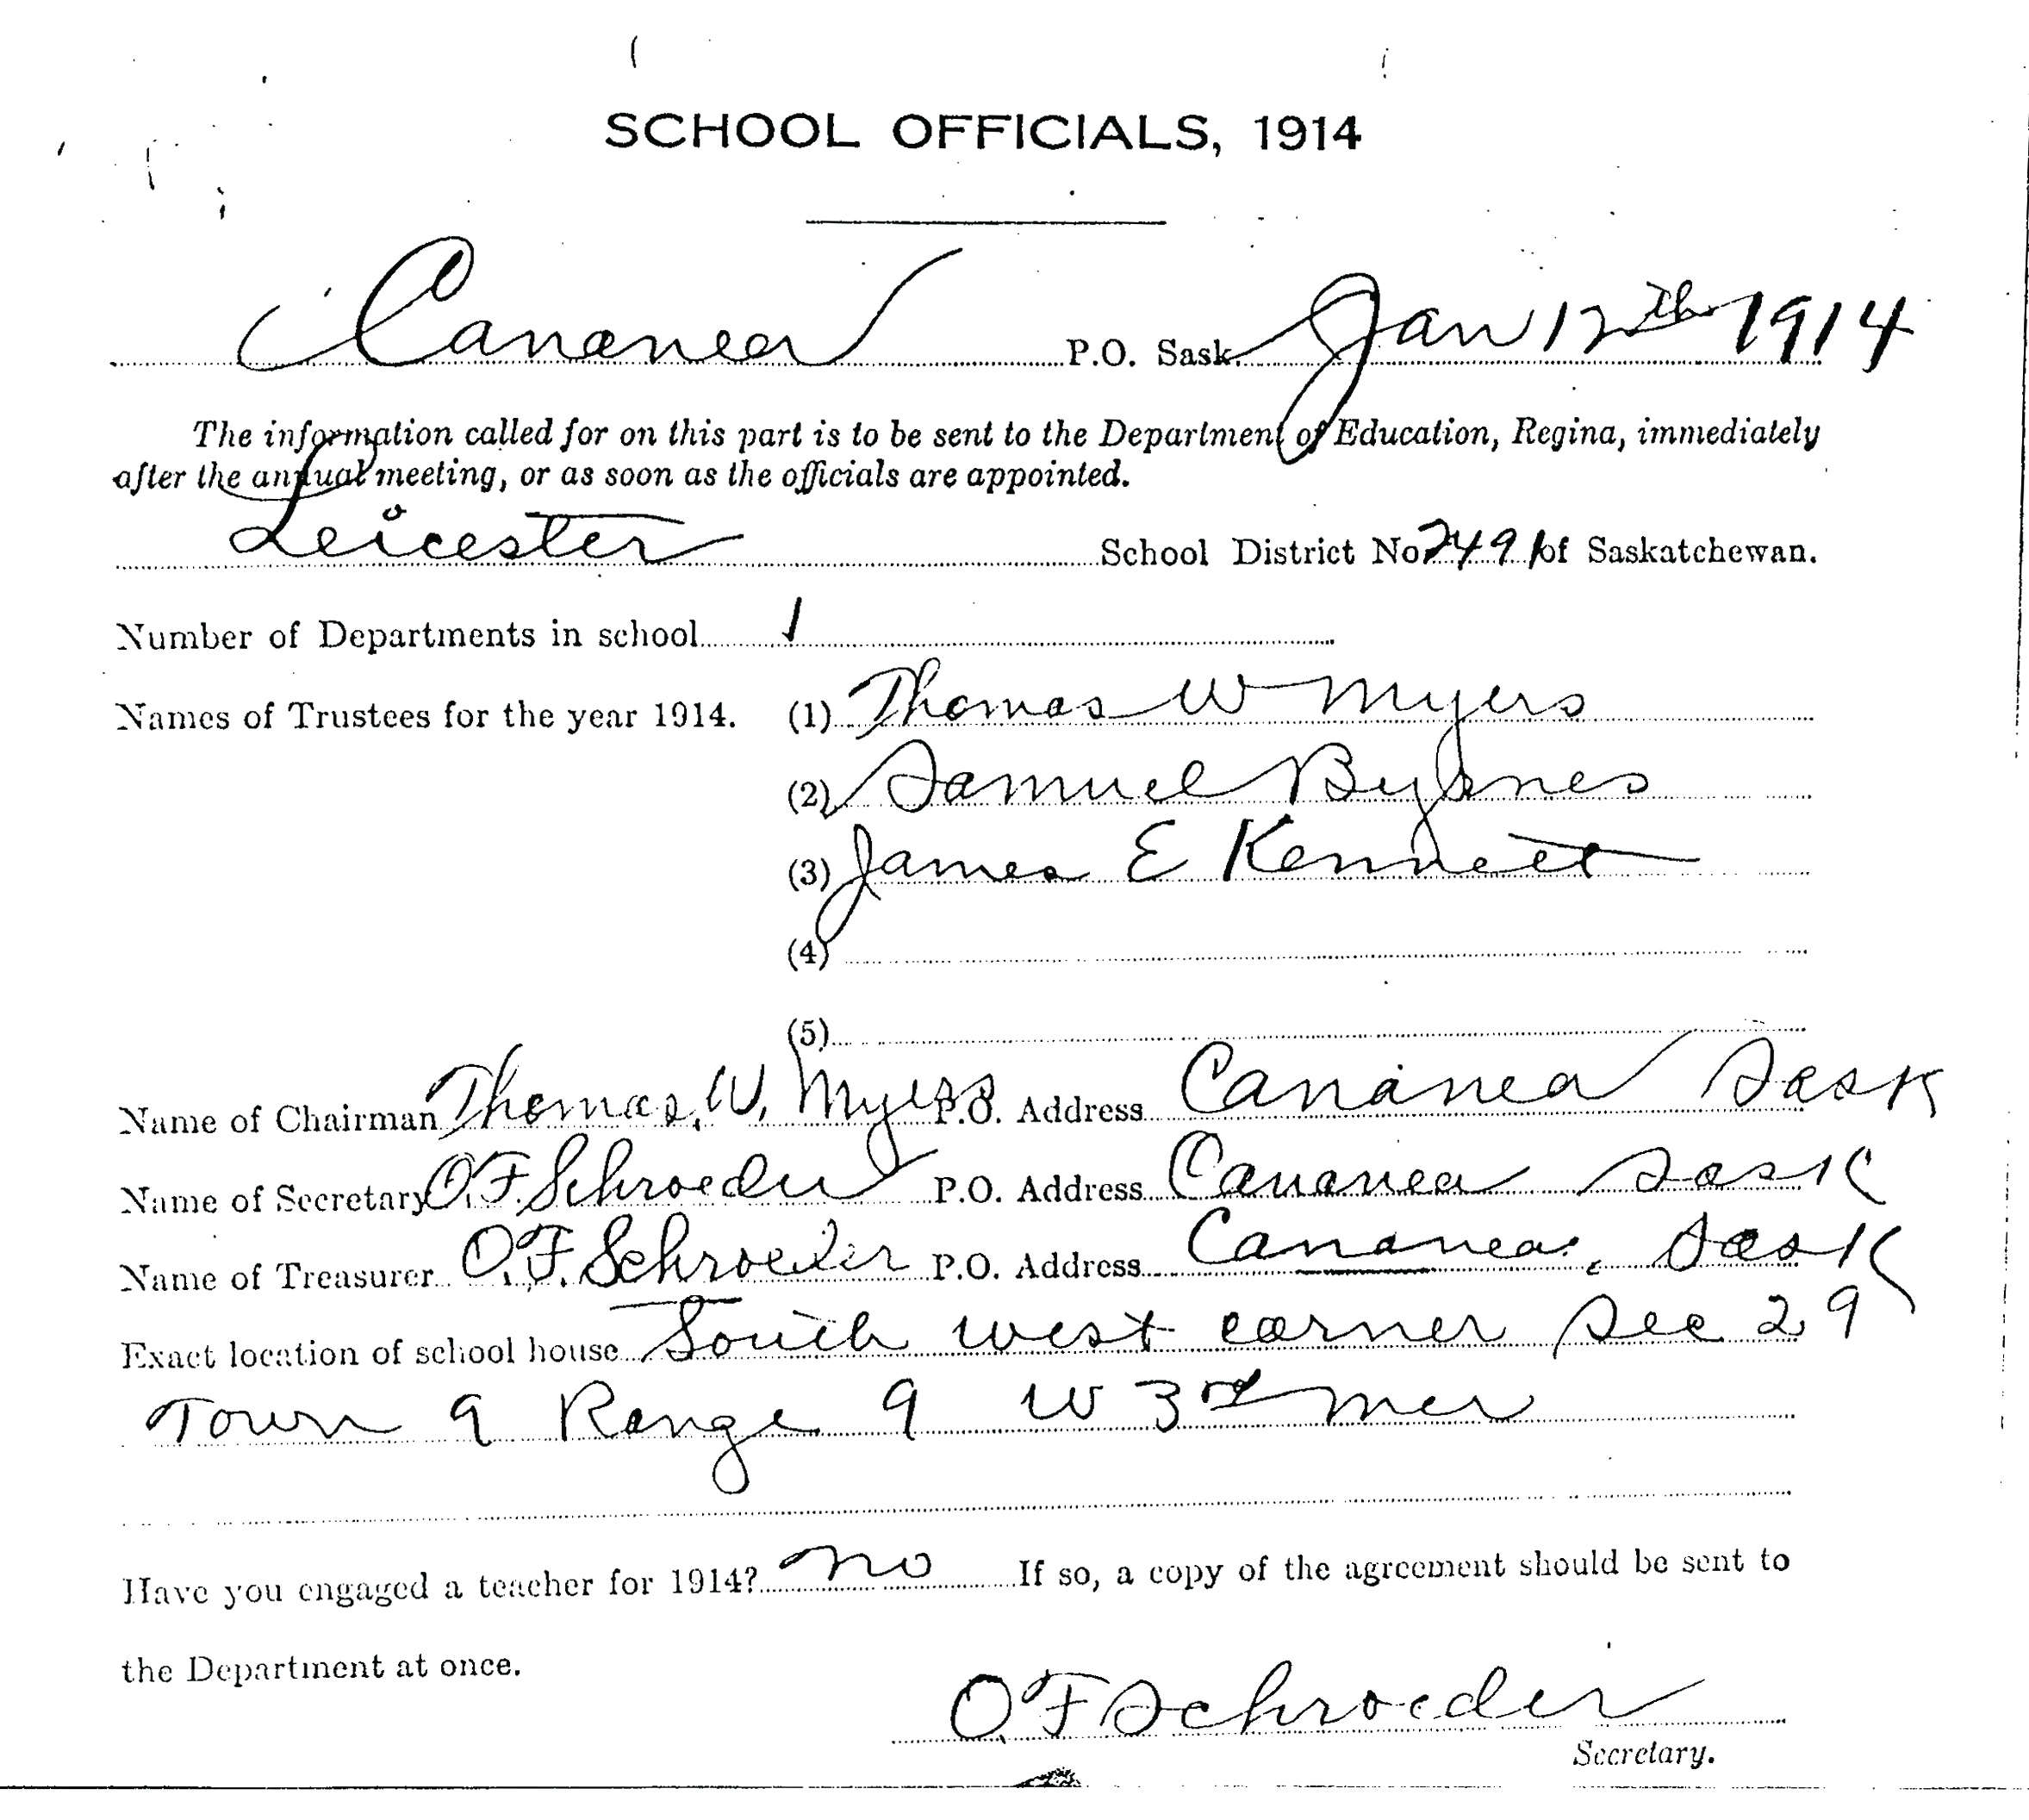 SCHOOL OFFICIALS, 1914
Cananea P.O. Sask. Jan 12th 1914
The information called for on this part is to be sent to the Department of Education, Regina, immediately
after the annual meeting, or as soon as the officials are appointed.
Leicester School District No 2491 of Saskatchewan.
Number of Departments in school 1
Names of Trustees for the year 1914. (1) Thomas W Myers
(2) Samuel Byrnes
(3) James E Kennett
(4)
(5)
Name of Chairman Thomas. W. Myers P.O. Address Cananea Sask
Name of Secretary O.F. Schroeder P.O. Address Cananea Sask
Name of Treasurer O.F. Schroeder P.O. Address Cananea, Sask
Exact location of school house South west corner Sec 29
Town 9 Range 9 W 3rd mer
Have you engaged a teacher for 1914? no If so, a copy of the agreement should be sent to
the Department at once.
O F Schroeder
Secretary.